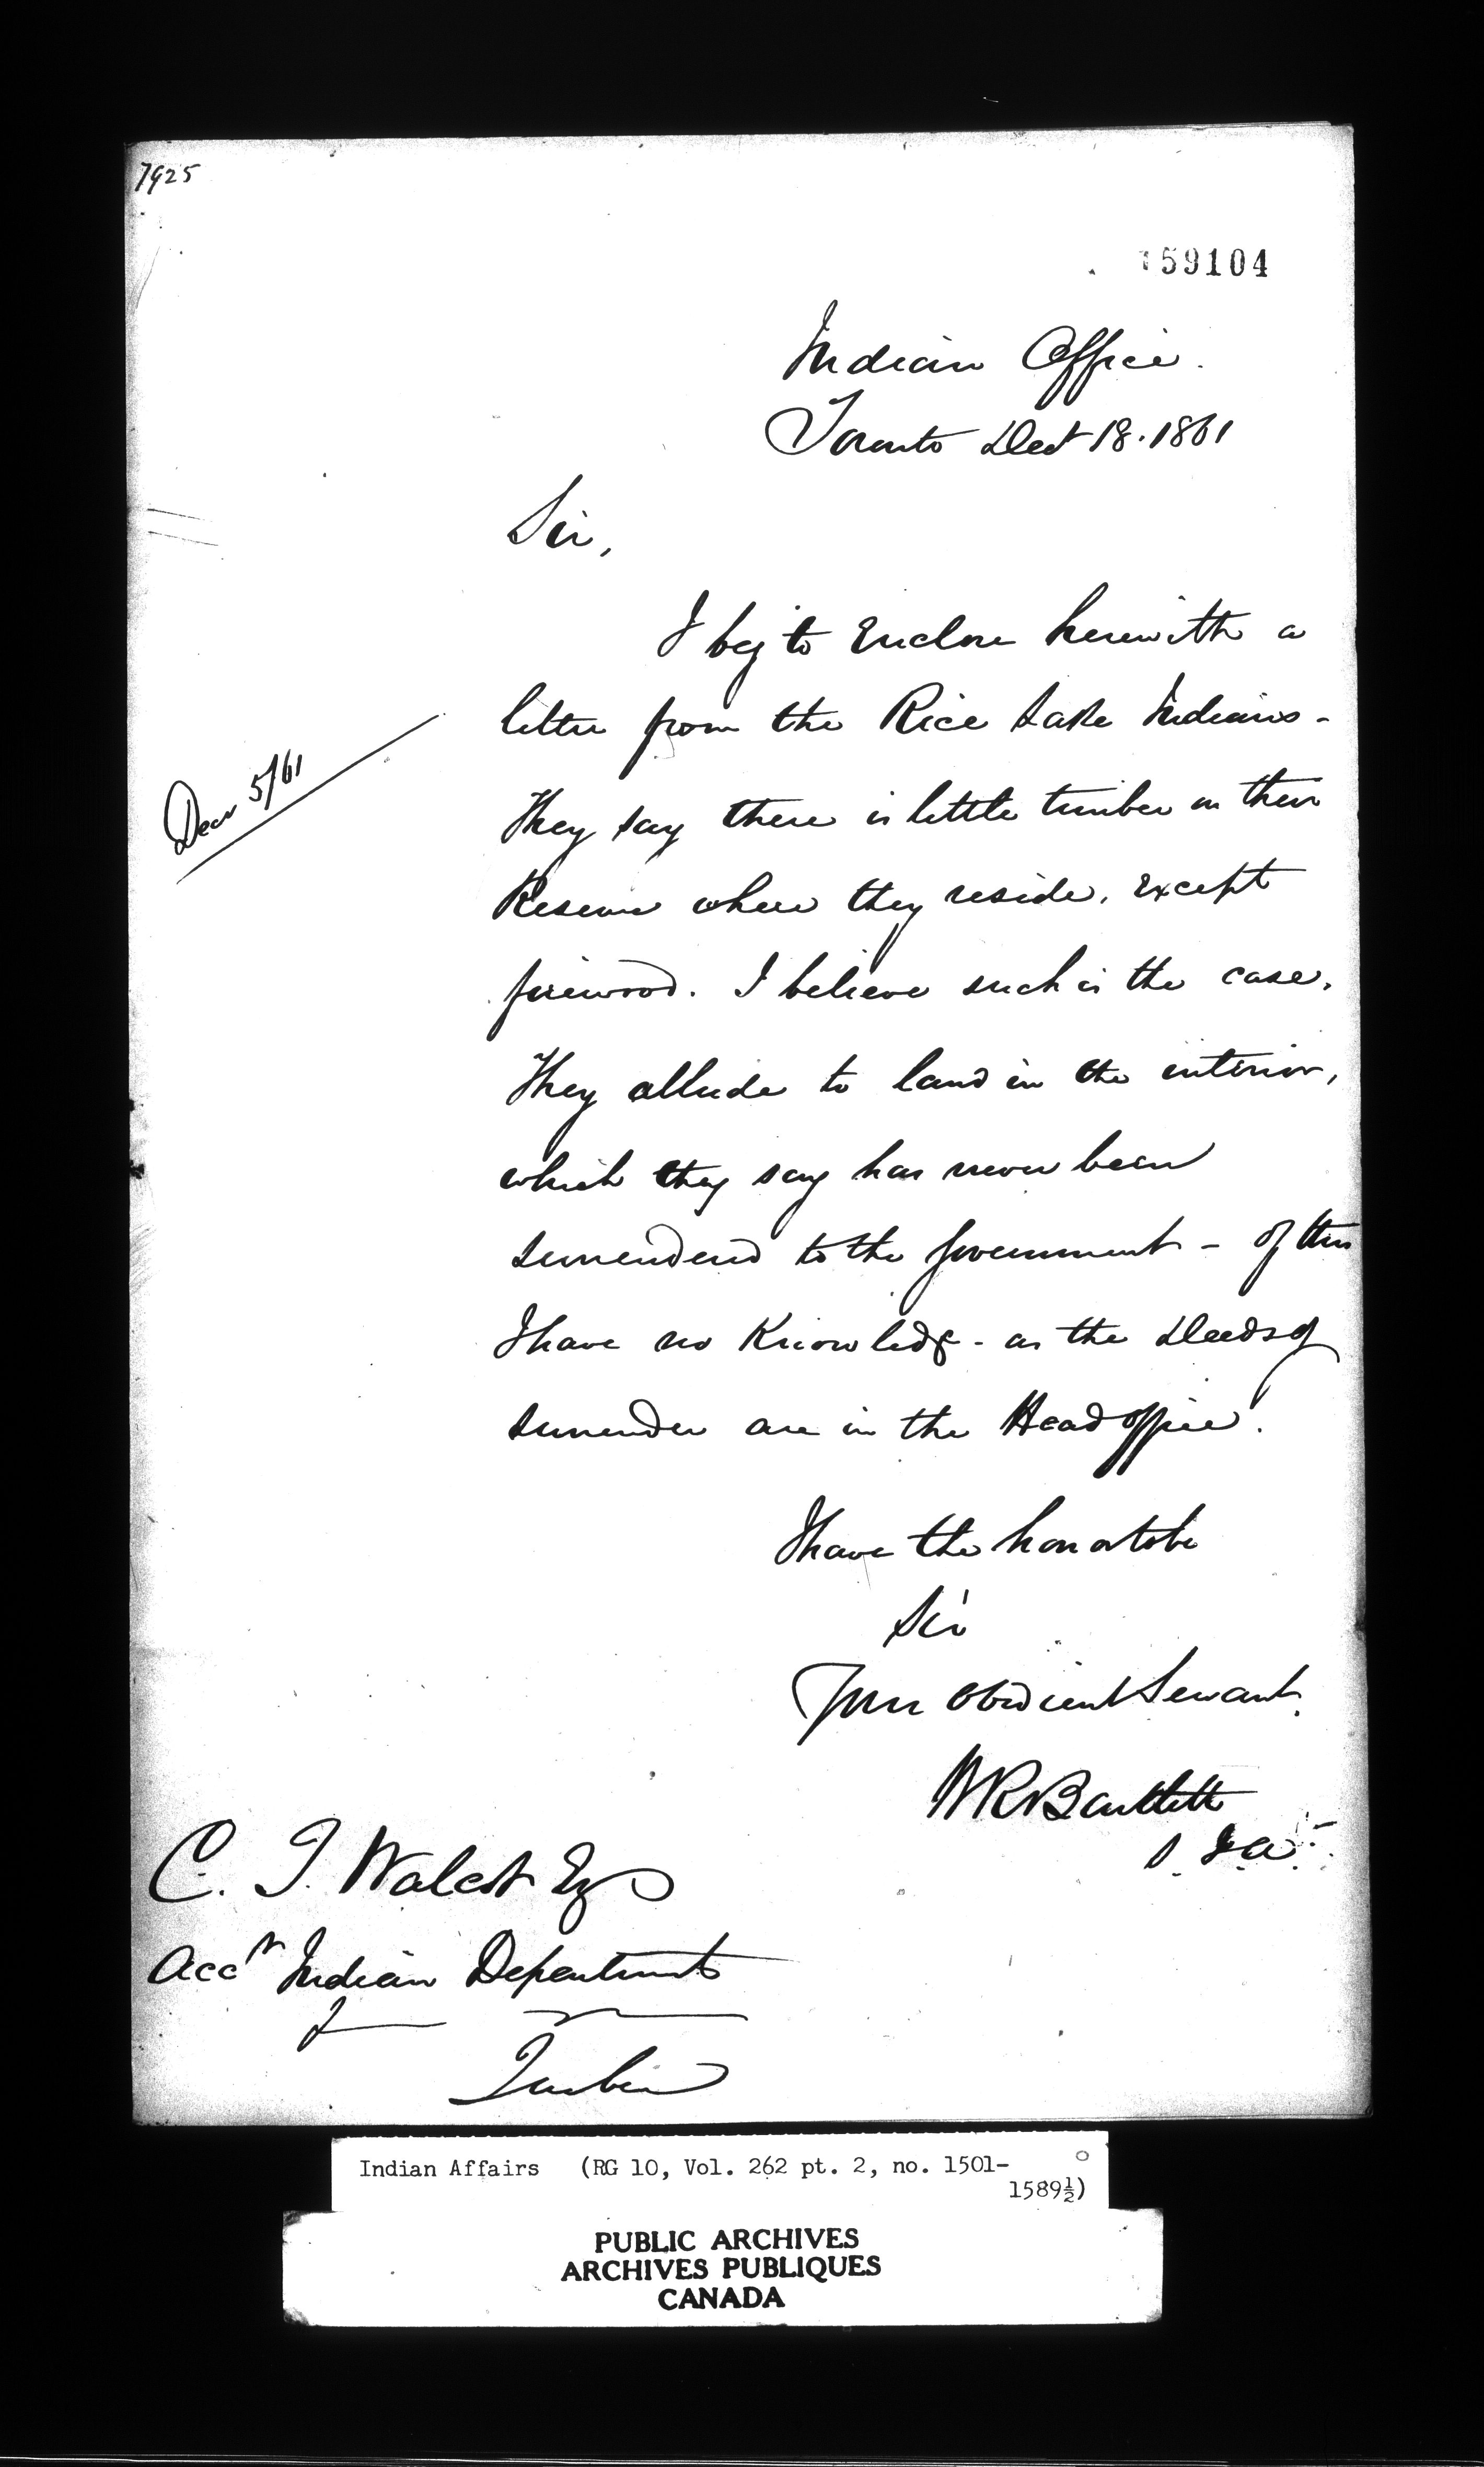 7925
159104
Indian Office.
Toronto Dec 18. 1861
Sir,
I beg to Enclose herewith a
letter from the Rice Lake Indians -
They say there is little timber on their
Reserve where they reside, Except
firewood. I believe such is the case.
They allude to land in the interior,
which they say has never been
surrendered to the Government - of this
I have no Knowledge - as the Deeds of
surrender are in the Head Office.
Decr 5/61
I have the honor to be
Sir
Your Obedient Servant.
WR Bartlett
C. T. Walcot Esq
Acct Indian Department
Quebec
Indian Affairs (RG 10, Vol. 262 pt. 2, no. 1501-
1589½)
PUBLIC ARCHIVES
ARCHIVES PUBLIQUES
CANADA